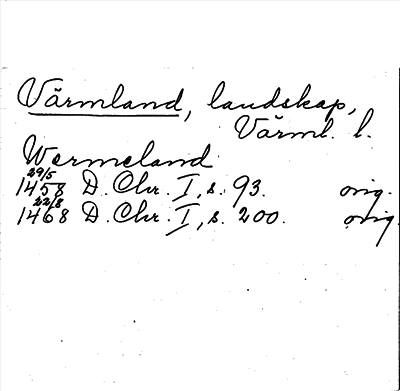 Värmland, landskap,
Värml. l.
Wermeland
29/5
1458 D. Chr. I, s. 93. orig.
22/8
1468 D. Chr. I, s. 200. orig.